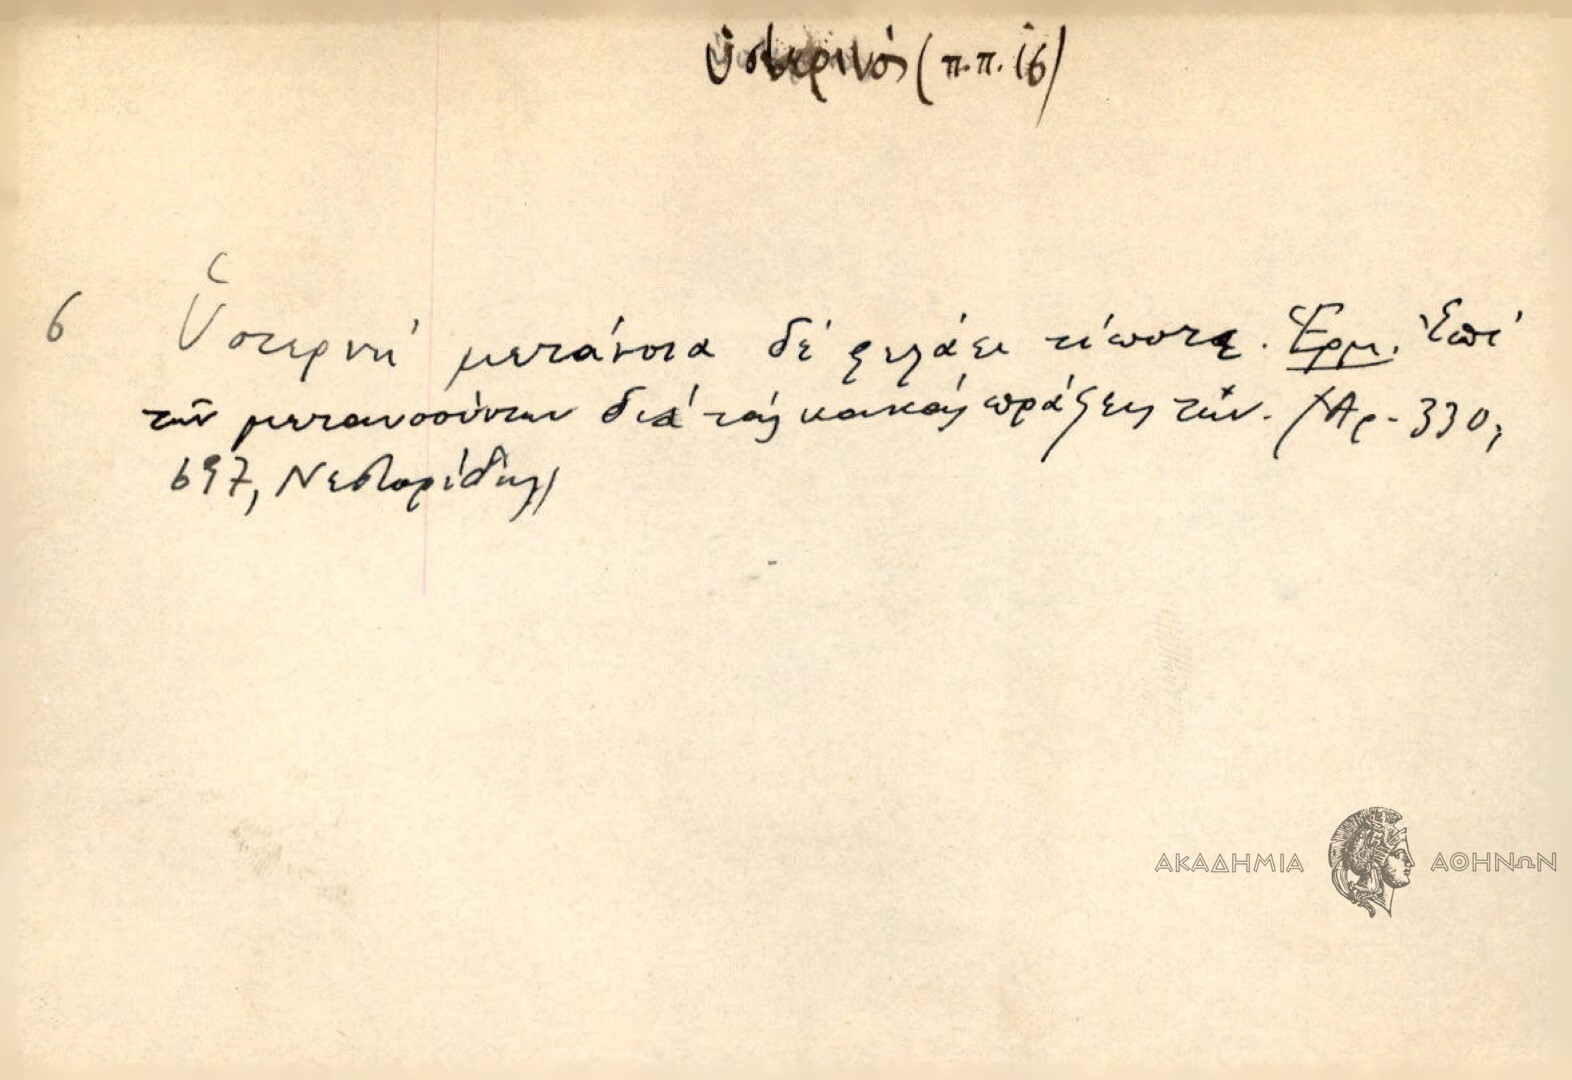 ὑστερινός (π.π. 16)
6 Ὑστερνή μετάνοια δέ φελάει τίποτε. Ἑρμ. Ἐπί
τῶν μετανοούντων διά τάς κακάς πράξεις των. (Ἀρ. 330,
697, Νεστορίδης)
ΑΚΑΔΗΜΙΑ ΑΘΗΝΩΝ